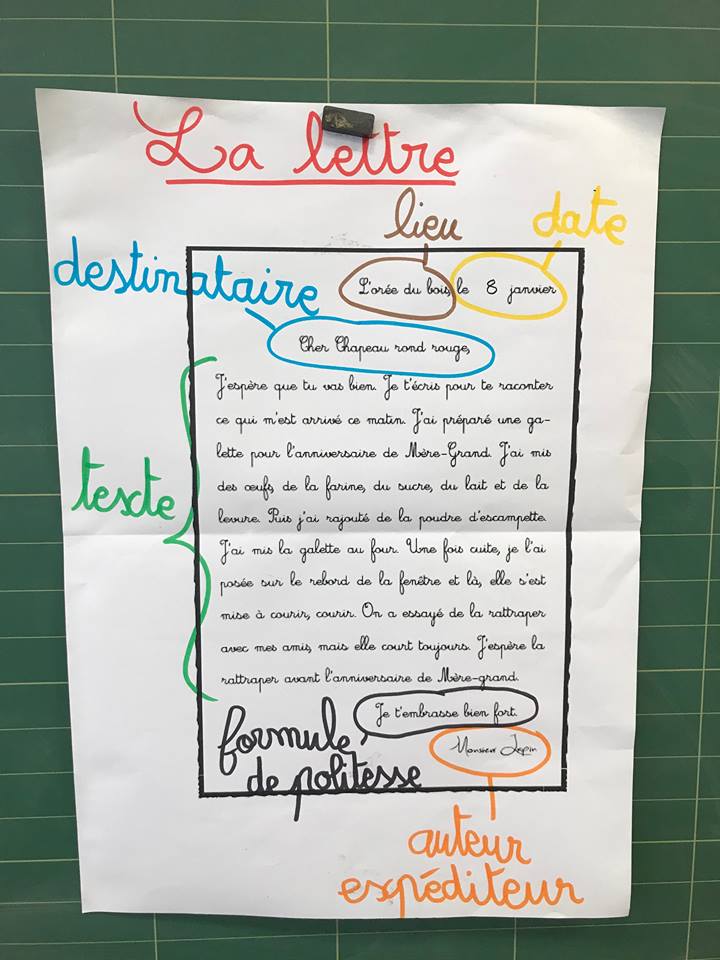 La lettre
lieu
date
destinataire
L'orée du bois, le 8 janvier
Cher Chapeau rond rouge,
J'espère que tu vas bien. Je t'écris pour te raconter
ce qui m'est arrivé ce matin. J'ai préparé une ga-
lette pour l'anniversaire de Mère-Grand. J'ai mis
des œufs, de la farine, du sucre, du lait et de la
levure. Puis j'ai rajouté de la poudre d'escampette.
J'ai mis la galette au four. Une fois cuite, je l'ai
posée sur le rebord de la fenêtre et là, elle s'est
mise à courir, courir. On a essayé de la rattraper
avec mes amis, mais elle court toujours. J'espère la
rattraper avant l'anniversaire de Mère-grand.
texte
Je t'embrasse bien fort.
formule
de politesse
Monsieur Lapin
auteur
expéditeur